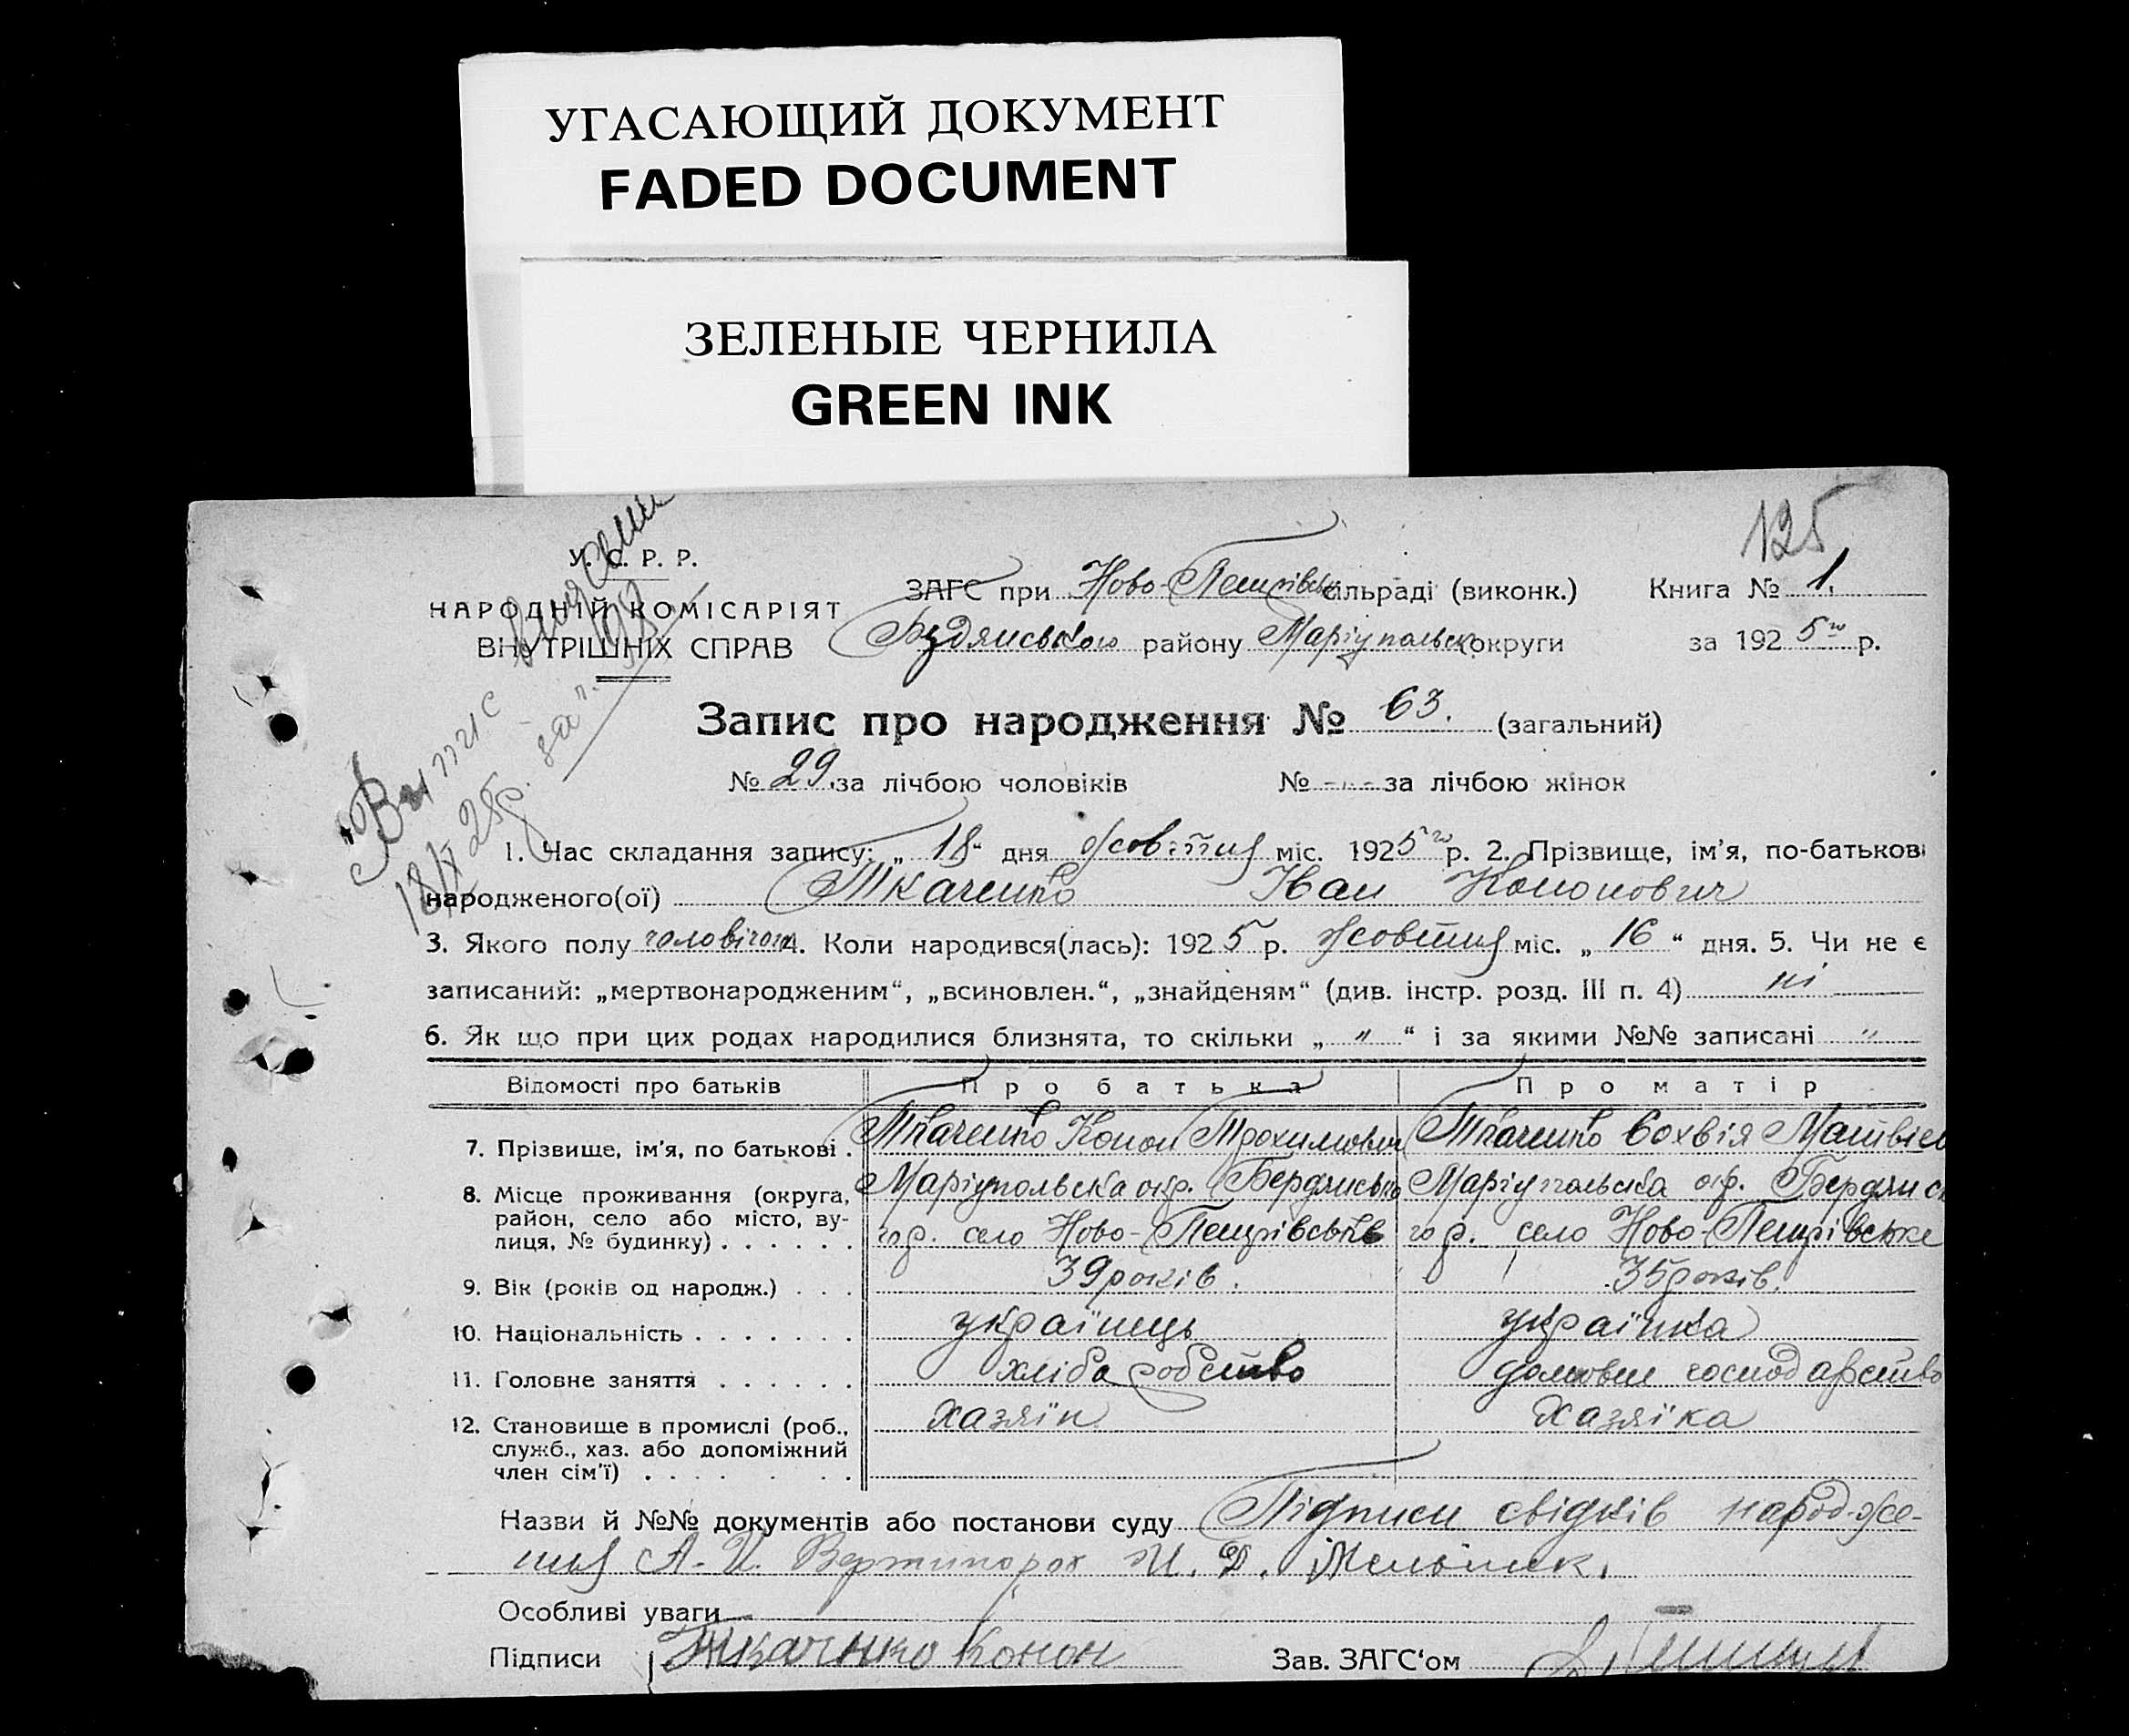 УГАСАЮЩИЙ ДОКУМЕНТ
FADED DOCUMENT
ЗЕЛЕНЫЕ ЧЕРНИЛА
GREEN INK
125
У. С. Р. Р.
НАРОДНІЙ КОМІСАРІЯТ
ВНУТРІШНІХ СПРАВ
ЗАГС при Ново-Петрівськ сільраді (виконк.) Книга № 1.
району Маріупольськ округи за 1925 р.
Витис
18/X 25р. за п.
Запис про народження № 63. (загальний)
№ 29. за лічбою чоловіків № -"- за лічбою жінок
1. Час складання запису: „18“ дня жовтня міс. 1925 р. 2. Прізвище, ім'я, по-батькові
народженого(ої) Ткаченко Іван Кононович
3. Якого полу чоловічого 4. Коли народився(лась): 1925 р. жовтня міс. „16“ дня. 5. Чи не є
записаний: „мертвонародженим“, „всиновлен.“, „знайденям“ (див. інстр. розд. III п. 4) ні
6. Як що при цих родах народилися близнята, то скільки „ " “ і за якими №№ записані "
Відомості про батьків Про батька Про матір
7. Прізвище, ім'я, по батькові . Ткаченко Конон Трохимович Ткаченко Сохвія Матвієв
8. Місце проживання (округа, Маріупольска окр. Бердянсько Маріупольска окр. Бердянсь
район, село або місто, ву-
лиця, № будинку) . . . . . . го р. село Ново-Петрівське го р. село Ново-Петрівське
9. Вік (років од народж.) . . . 39 років. 35 років.
10. Національність . . . . . . . українець українка
11. Головне заняття . . . . . . хліборобство домовне господарство
12. Становище в промислі (роб., хазяїн хазяїка
служб., хаз. або допоміжний
член сім'ї) . . . . . . .
Назви й №№ документів або постанови суду Підписи свідків народже-
ння А. И. Вертипорох И. Д. Мельник.
Особливі уваги
Підписи Ткаченко Конон Зав. ЗАГС'ом